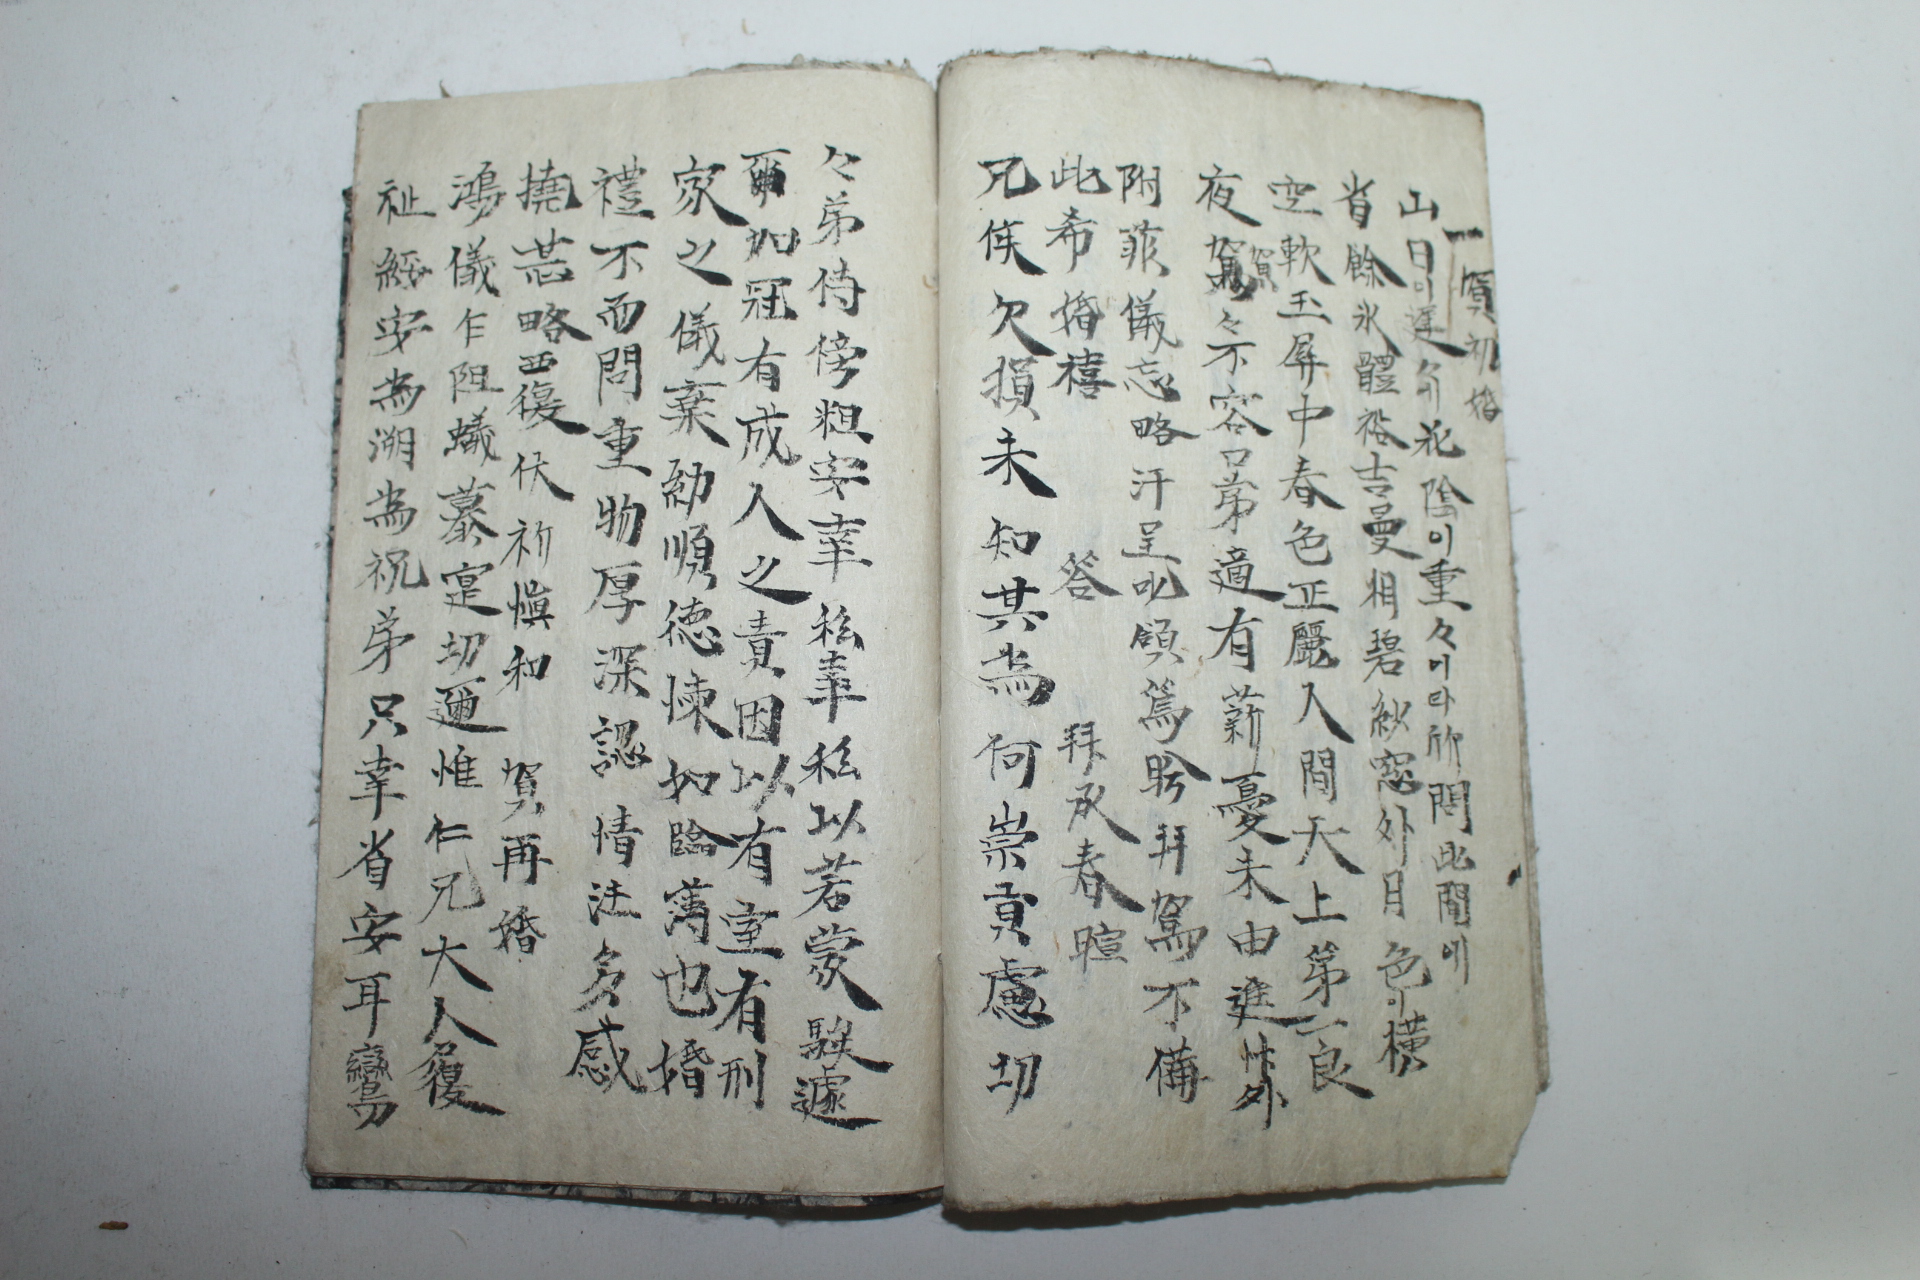 一賀初婚
山日이遲々花陰이重々이라欣問此間에
省餘氷體裕吉曼相碧紗窓外月色이橫
空軟玉屛中春色正麗人間天上第一良
夜賀賀々不容口弟適有薪憂未由進忭外
附菲儀忘略汗呈叱領爲盼拜駕不備
此希婚禧 答 拜承春暄
兄候欠損未知其為何崇貢慮切
々弟侍傍粗安幸私幸私以若蒙騃遽
爾加冠有成人之責因以有室有刑
家之儀棄幼順德悚如臨薄也婚
禮不而問重物厚深認情注多感
撓荒略西復伏祈愼和 賀再婚
鴻儀乍阻蟻慕寔切邇惟仁兄大人履
祉綏安為溯為祝弟只幸省安耳鸞